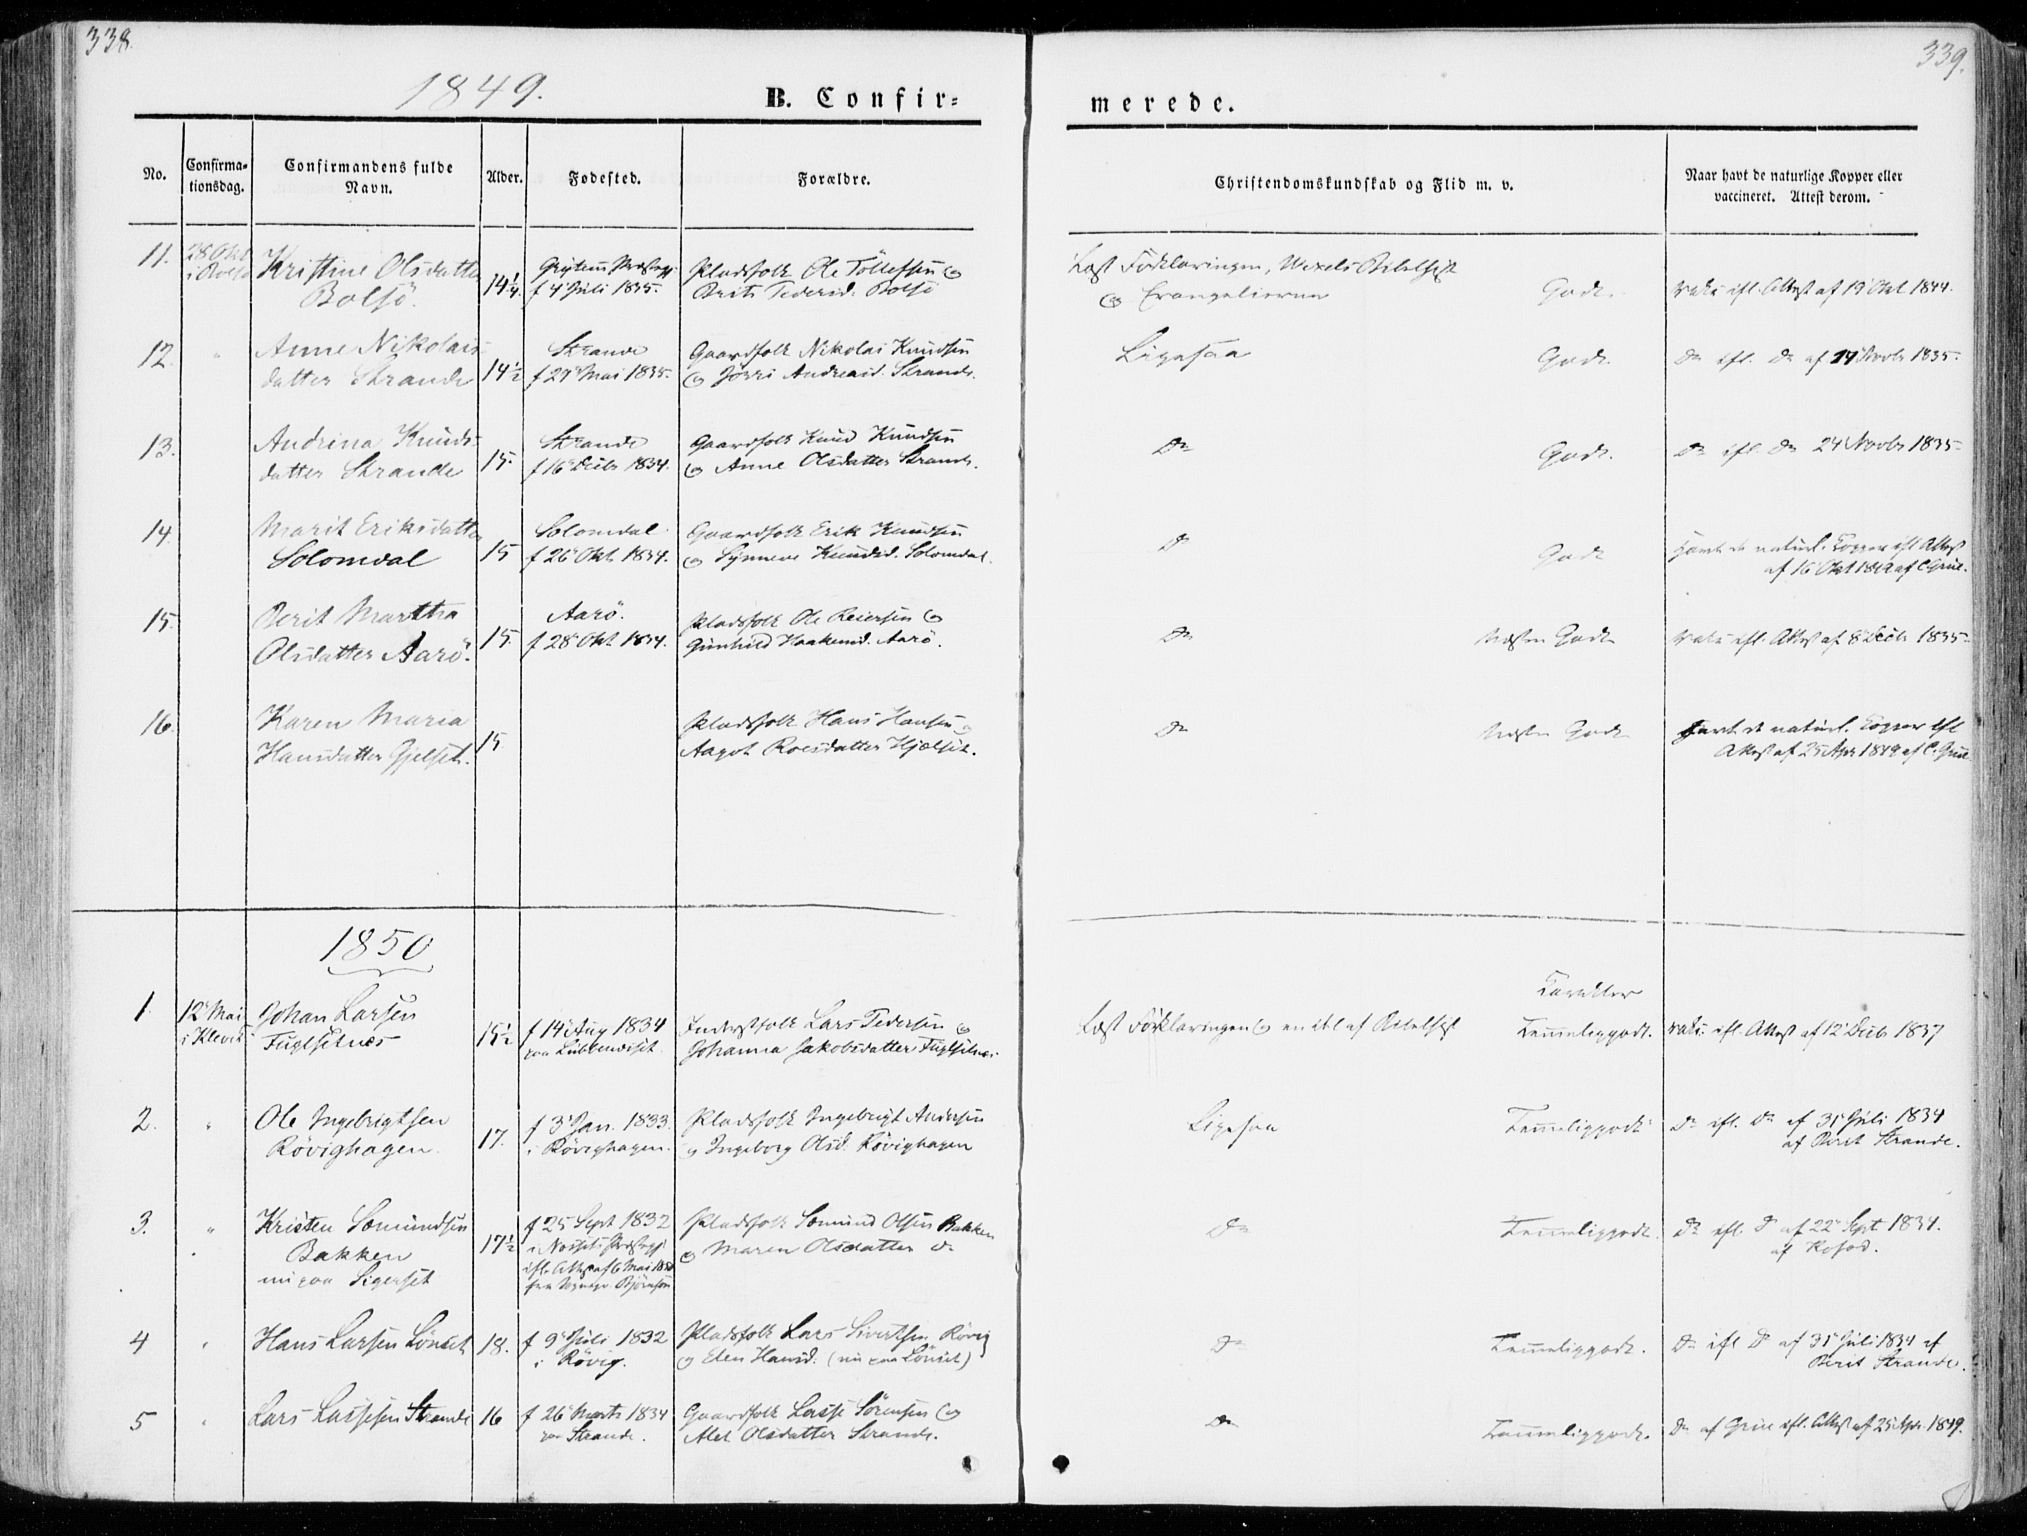 338.
339.
1849.
B. Confir=
merede.
No.
Confirma=
tionsdag.
Confirmandens fulde
Navn.
Alder.
Fødested.
Forældre.
Christendomskundskab og Flid m. v.
Naar havt de naturlige Kopper eller
vaccineret. Attest derom.
11. 28 Okt
i Bolsö
Kristine Olsdatter
Bolsö.
14¼.
f 4 Juli 1835.
Pladsfolk Ole
Brit Bolsö
Læst Forklaringen, Wexels Bibelhist
og Evangelierne
Godt.
Vakc ifl. Attest af 19 Okt 1844.
12. "
Anne Nikolais
datter Strande
14½
Strande
f 29 Mai 1835.
Gaardfolk Nikolai Knudsen
og Andreasd. Strande.
Ligesaa
Godt.
Do ifl. Do af Novbr 1835.
13.
Andrina Knuds
datter Strande
15.
Strande
f 16 Decbr 1834.
Gaardfolk Knud Knudsen
og Anne Olsdatter Strande.
Do
Godt.
Do ifl. Do 24 Novbr 1835.
14.
Marit Eriksdatter
Solomdal
15
Solomdal
f 26 Okt 1834.
Gaardfolk Erik Knudsen
og Synneve Knudsd. Solomdal.
Do
Godt
Havt de naturl. Kopper ifl Attest
af 16 Okt af C. Grüe.
15.
Berit Martha
Olsdatter Aarö.
15.
Aarö.
f 28 Okt 1834.
Pladsfolk Ole Reiersen og
Gunhild Haakensd. Aarö.
Do
Næsten Godt
Vakc ifl. Attest af 8 Decbr 1835.
16.
Karen Maria
Hansdatter Gjelset.
15.
Pladsfolk Hans Hansen og
Aagot Roesdatter Hjelset.
Do
Næsten Godt
Havt de naturl. Kopper ifl
Attest af 25 Apr 1849 af C. Grüe
1850
Karakter
1. 12 Mai
i Klevet
Johan Larsen
Fuglsetnes
15½
f 14 Aug 1834
paa
Inderstfolk Lars Pedersen og
Johanna Jakobsdatter Fuglsetnes
Læst Forklaringen og en del af Bibelhist
Temmeliggodt.
Vakc ifl. Attest af 12 Decbr 1837
2. "
Ole Ingebrigtsen
Rövighagen.
17.
f 3 Jan. 1833.
i Rövighagen.
Pladsfolk Ingebrigt Andersen
og Ingeborg Olsd. Rövighagen
Ligesaa
Temmeliggodt
Do ifl. Do af 31 Juli 1834
af Berit Strande.
3. "
Kristen Sæmundsen
Bakken
nu paa Sigerset
17½
f 25 Sept 1832
i Nesset Præstegj
ifl. Attest af 6 Mai 1850
fra Sognepr Björnson
Pladsfolk Sæmund Olsen Bakken
og Maren Olsdatter do
Do
Temmeliggodt.
Do ifl. Do af 22 Sept 1834.
af
4 "
Hans Larsen Lönset
18.
f 9 Juli 1832
i Rövig.
Pladsfolk Lars Sivertsen Rövig
og Elen Hansd. (nu paa Lönset)
Do
Temmeliggodt.
Do ifl Do af 31 Juli 1834 af
Berit Strande.
5 "
Lars Lassesen Strande
16
f 26 Marts 1834
paa Strande.
Gaardfolk Lasse Sörensen og
Alet Olsdatter Strande.
Do
Temmeliggodt.
Do af Grüe ifl. Attest af 25 Apr. 1849.